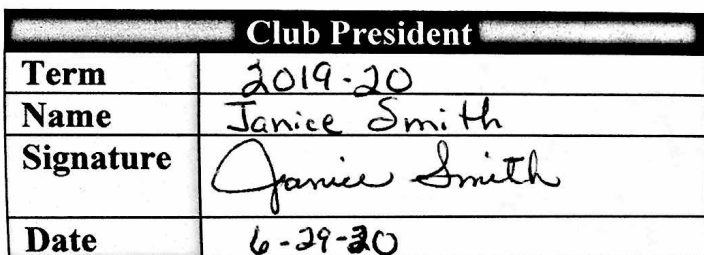 Club President
Term 2019-20
Name Janice Smith
Signature Janice Smith
Date 6-29-20